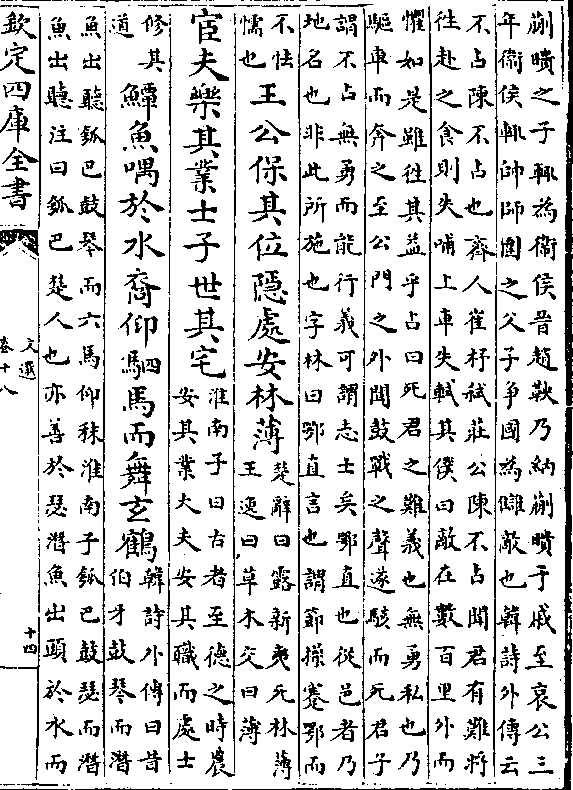 蒯聵之子輒為衞侯晉趙鞅乃納蒯聵于戚至哀公三
年衞侯輒帥師圍之父子爭國為讎敵也韓詩外傳云
不占陳不占也齊人崔杼弑莊公陳不占聞君有難將
往赴之食則失哺上車失軾其僕曰敵在數百里外而
懼如是雖往其益乎占曰死君之難義也無勇私也乃
驅車而奔之至公門之外聞鼓戰之聲遂駭而死君子
謂不占無勇而能行義可謂志士矣鄂直也從邑者乃
地名也非此所施也字林曰鄂直言也謂節操蹇鄂而
不怯
懦也
王公保其位隱處安林薄
楚辭曰露新夷死林薄
王逸曰草木交曰薄
宦夫樂其業士子世其宅
淮南子曰古者至德之時農
安其業大夫安其職而處士
修其
道
鱏魚喁於水裔仰駟馬而舞玄鶴
韓詩外傳曰昔
伯牙鼓琴而潛
魚出聽瓠巴鼓琴而六馬仰秣淮南子瓠巴鼓瑟而潛
魚出聽注曰瓠巴楚人也亦善於瑟潛魚出頭於水而
欽定四庫全書
文選
卷十八
十四